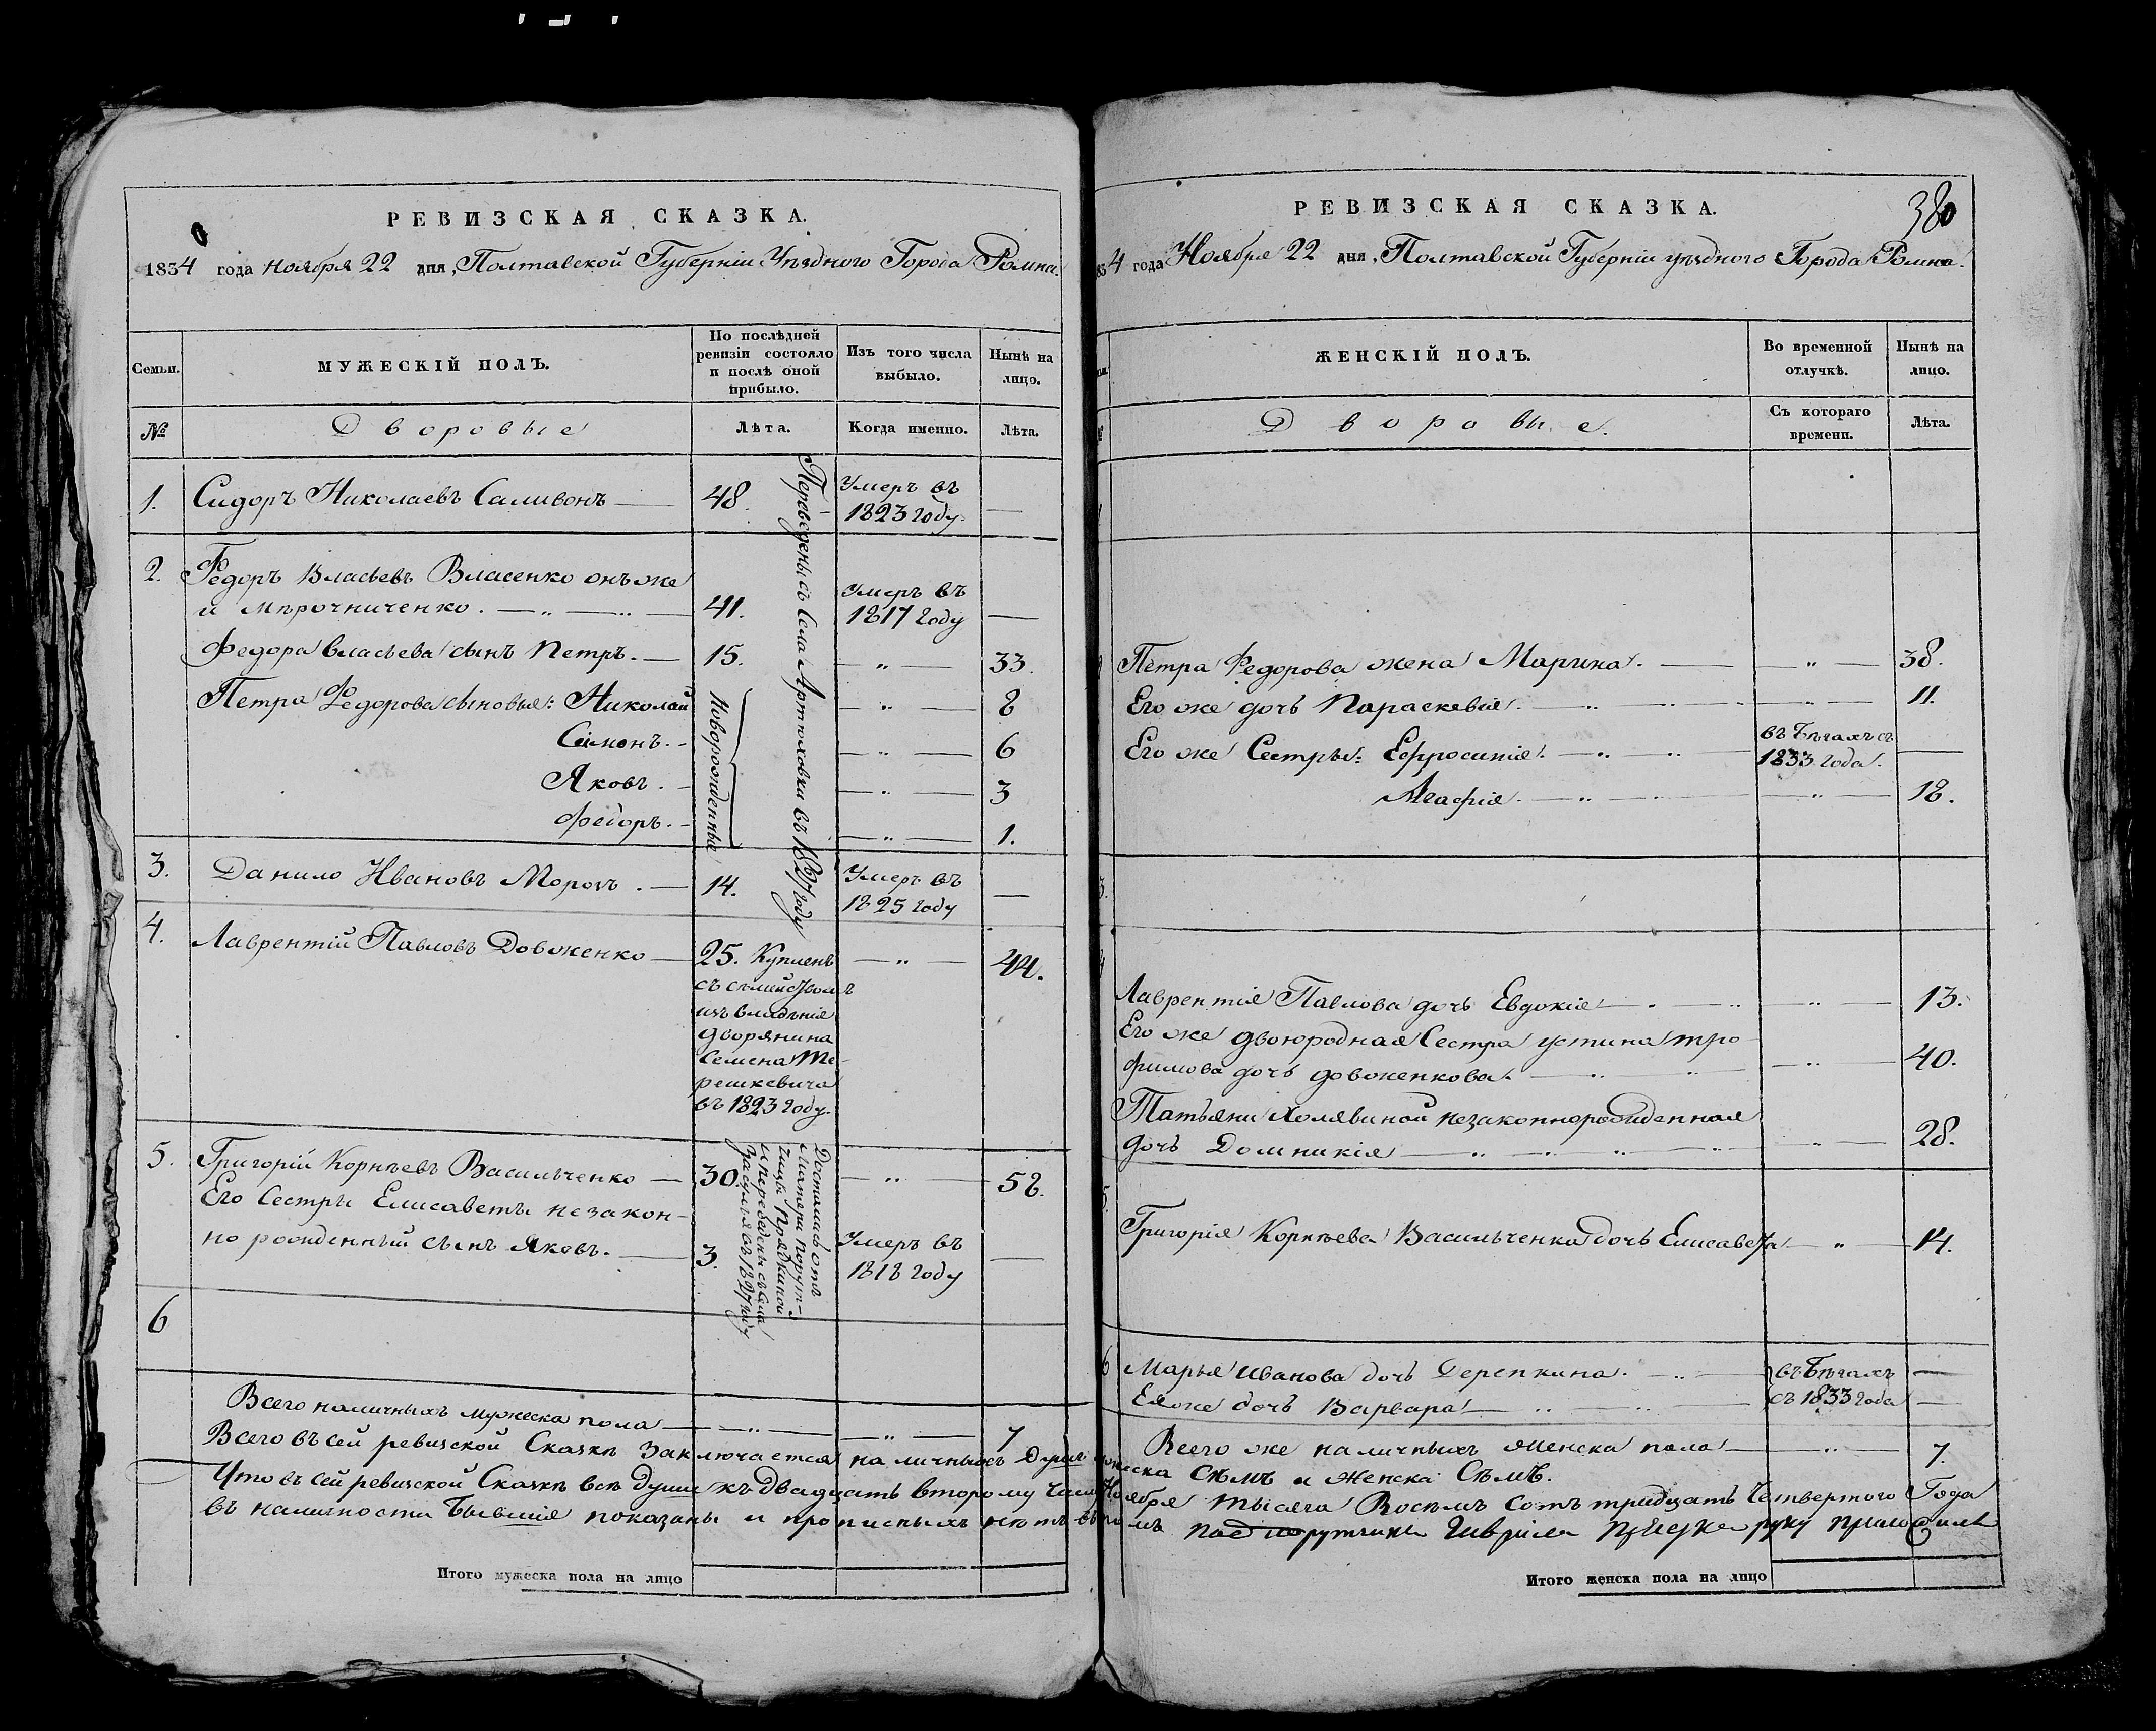 РЕВИЗСКАЯ СКАЗКА.
1834 года Ноября 22 дня, Полтавской Губерніи Уѣзднаго Города Ромна.
Семьи.
МУЖЕСКІЙ ПОЛЪ.
По послѣдней ревизіи состояло и послѣ оной прибыло.
Изъ того числа выбыло.
Нынѣ на лицо.
№
Дворовые
Лѣта.
Когда именно.
Лѣта.
1. Сидоръ Николаевъ Саливонъ 48. Умеръ въ 1823 году —
Переведены съ Села Артюховки въ 1827 году
2. Федоръ Власьевъ Власенко онъ же
и Мѣрочниченко. 41. Умеръ въ 1817 году —
Федора Власьева сынъ Петръ. 15. — „ — 33.
Петра Федорова сыновья: Николай — „ — 8
Симонъ. — „ — 6
Яковъ. — „ — 3
Федоръ. — „ — 1.
Новорожденные
3. Данило Ивановъ Морозъ. 14. Умеръ въ 1825 году —
4. Лаврентій Павловъ Довженко 25. Купленъ — „ — 44.
съ семействомъ
изъ владѣнія
дворянина
Семена Ме-
решкевича
въ 1823 году.
5. Григорій Корнѣевъ Васильченко 30. — „ — 52.
Его Сестры Елисаветы незакон-
но рожденный сынъ Яковъ. 3. Умеръ въ 1818 году —
Достались отъ
Матери Порут-
чицы
и переведены съ Села
въ 1827 году
6
Всего наличныхъ мужеска пола — „ — „ — 7
РЕВИЗСКАЯ СКАЗКА.
380
4 года Ноября 22 дня, Полтавской Губерніи уѣзднаго Города Ромна.
ЖЕНСКІЙ ПОЛЪ.
Во временной отлучкѣ.
Нынѣ на лицо.
Дворовые.
Съ котораго времени.
Лѣта.
Петра Федорова жена Марина. — „ — 38.
Его же дочь Параскевія. — „ — 11.
Его же Сестры: Ефросинія. въ бѣгахъ съ 1833 года. —
Агафія. — „ — 18.
3.
Лаврентія Павлова дочь Евдокія — „ — 13.
Его же двоюродная Сестра Устина Тро-
фимова дочь Довженкова. — „ — 40.
Татьяни Холявиной незаконнорожденная
дочь Домникія — „ — 28.
Григорія Корнѣева Васильченка дочь Елисавета — „ — 14.
6 Марья Иванова дочь Дерепкина. въ бѣгахъ —
Ея же дочь Варвара съ 1833 года —
Всего же наличныхъ женска пола — „ — 7.
Всего въ сей ревизской Сказкѣ заключается наличныхъ Душъ мужеска Семъ и женска Семъ.
Что въ сей ревизской Сказкѣ всѣ души къ двадцать второму числу Ноября тысяча Восемь сотъ тридцать четвертого Года
въ наличности бывшіе показаны и прописныхъ нѣтъ въ томъ подпорутчикъ Гаврила руку приложилъ
Итого мужеска пола на лицо
Итого женска пола на лицо